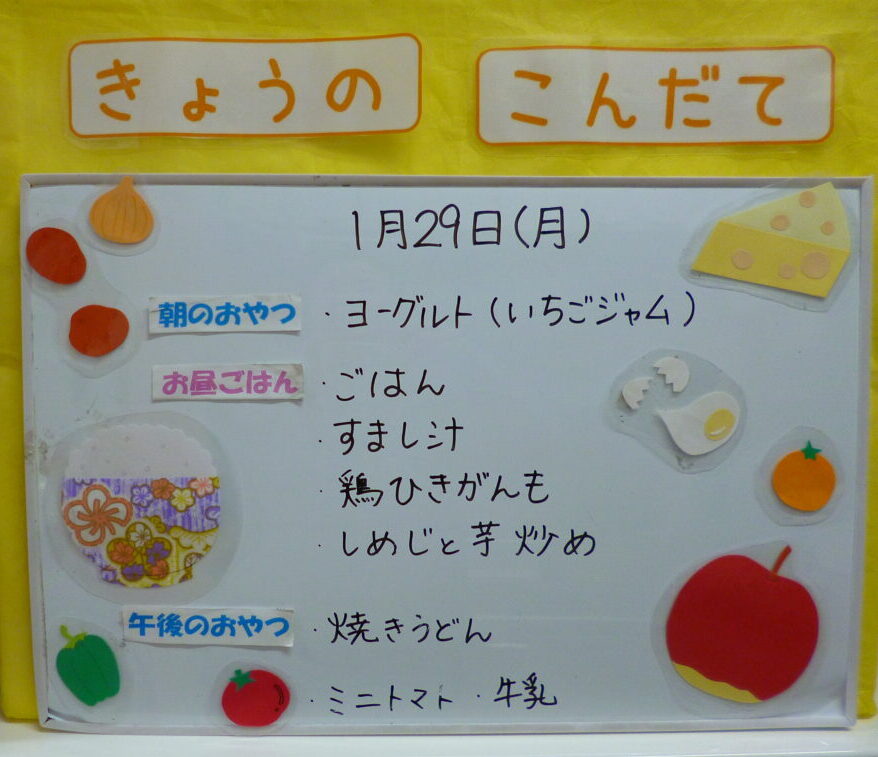 きょうの こんだて
1月29日(月)
朝のおやつ ・ヨーグルト(いちごジャム)
お昼ごはん ・ごはん
・すまし汁
・鶏ひきがんも
・しめじと芋炒め
午後のおやつ ・焼きうどん
・ミニトマト ・牛乳